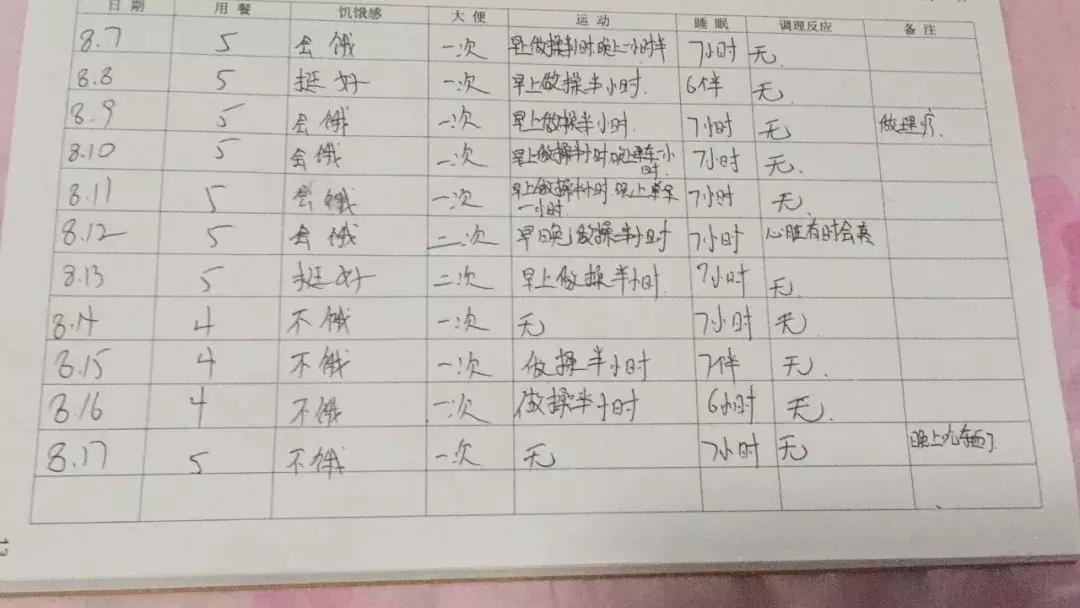 日期 用餐 饥饿感 大便 运动 睡眠 调理反应 备注
8.7 5 会饿 一次 早上做操半小时,晚上一小时半 7小时 无
8.8 5 挺好 一次 早上做操半小时. 6个半 无.
8.9 5 会饿 一次 早上做操半小时. 7小时 无 做理疗.
8.10 5 会饿 一次 早上做操半小时.晚上单车一小时. 7小时 无.
8.11 5 会饿 一次 早上做操半小时.晚上单车一小时. 7小时 无
8.12 5 会饿 二次 早晚做操半小时 7小时 心脏有时会
8.13 5 挺好 二次 早上做操半小时. 7小时 无.
8.14 4 不饿 一次 无 7小时 无.
8.15 4 不饿 一次 做操半小时 7个半 无.
8.16 4 不饿 一次 做操半小时 6小时 无.
8.17 5 不饿 一次 无 7小时 无 晚上吃东西了
13